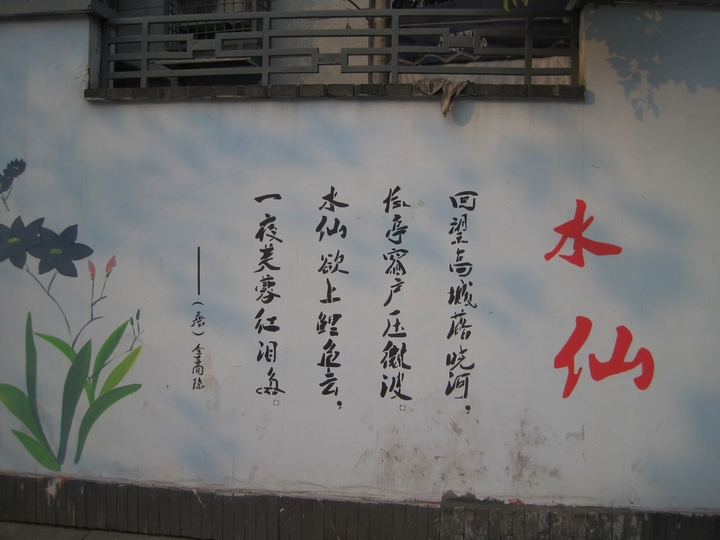 水仙
回望高城落晓河,
长亭窗户压微波。
水仙欲上鲤鱼去,
一夜芙蓉红泪多。
——(唐)李商隐